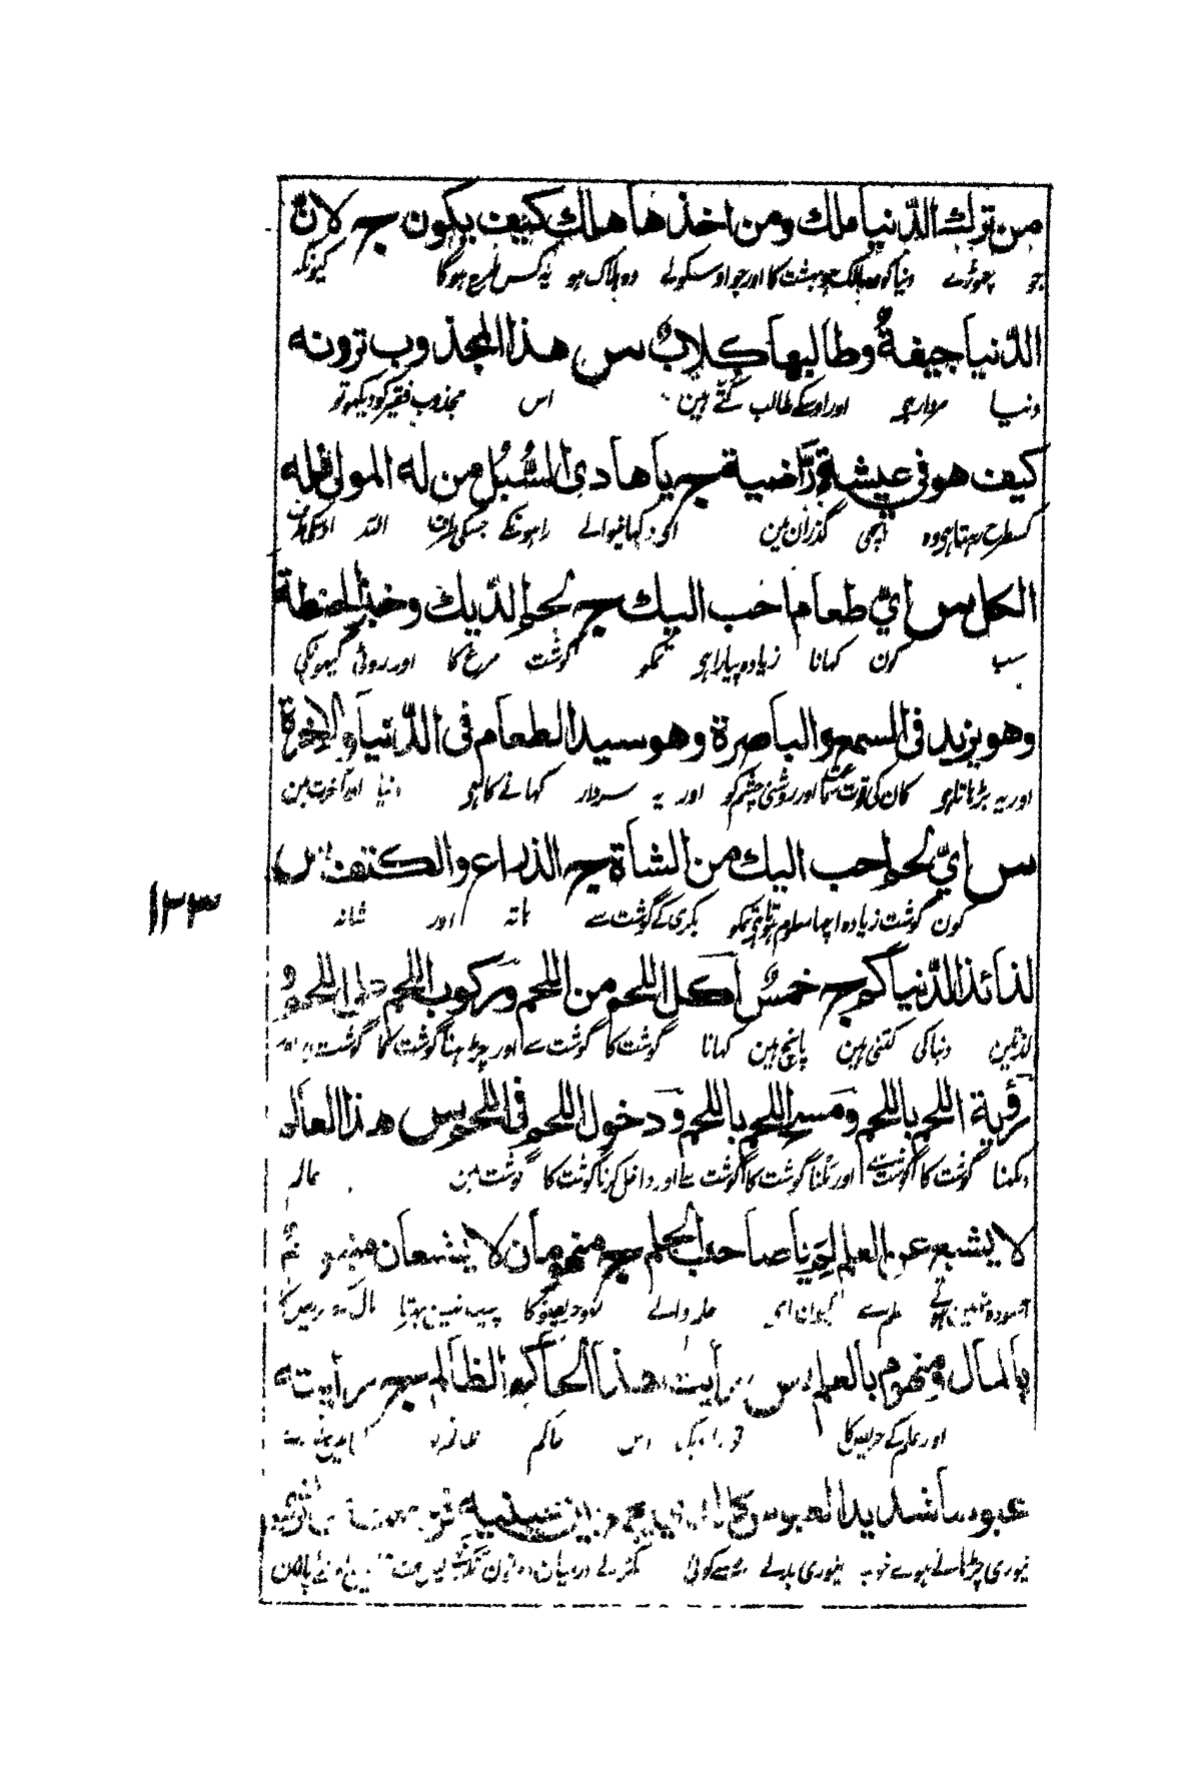 من ترك الدّنيا ملك ومن اخذها هلك كيف يكون ج لانّ
جو چھوڑے دنیا کو وہ مالک ہو بہشت کا اور جو اوسکو لے وہ ہلاک ہو یہ کس طرح ہوگا کیونکہ
الدّنيا جيفةٌ وطالبها كلابٌ س هذا المجذوب ترونه
دنیا مردار ہے اور اوسکے طالب کتے ہین اس مجذوب فقیر کو دیکھو تو
كيف هو في عيشةٍ رّاضية ج يا هادي السُّبُل من له المولى فله
کسطرح رہتا ہی وہ اچھی گذران مین ای دکہانیوالے راہونکے جسکی طرف اللہ اوسکی طرف
الكل س ايّ طعام احب اليك ج لحم الدّيك وخبز الحنطة
سب کون کہانا زیادہ پیارا ہے تمکو گوشت مرغ کا اور روٹی گیہونکی
وهو يزيد في السمع والباصرة وهو سيد الطعام في الدّنيا والاخرة
اور یہ بڑہاتا ہے کان کی قوت اور روشنی چشم کو اور یہ سردار کہانے کا ہے دنیا اور آخرت مین
س ايّ لحم احب اليك من الشاة ج الذراع والكتف س
کون گوشت زیادہ اچہا معلوم ہوتا ہی تمکو بکری کے گوشت سے ہاتہ اور شانہ
١٢٣
لذائذ الدّنيا كم ج خمسٌ اكل اللحم من اللحم وركوب اللحم على اللحم و
لذتین دنیا کی کتنی ہین پانچ ہین کہانا گوشت کا گوشت سے اور چڑہنا گوشت کا گوشت پر اور
رؤية اللحم باللحم ومسح اللحم باللحم ودخول اللحم في اللحم س هذا العالم
دیکہنا گوشت کا گوشت سے اور ملنا گوشت کا گوشت سے اور داخل کرنا گوشت کا گوشت مین عالم
لا يشبع عن العلم لم يا صاحب الحلم ج منهومان لا يشبعان منهوم
آسودہ نہین ہوتے علم سے کیون ای حلم والے دو حریصونکا پیٹ نہین بہرتا مال کے حریص کا
بالمال ومنهوم بالعلم س رأيت هذا الحاكم الظالم ج رأيته
اور علم کے حریص کا تو دیکہا اس حاکم ظالم
عبوسا شديد العبوس
تیوری چڑہائے ہوے خوب تیوری والے درمیان